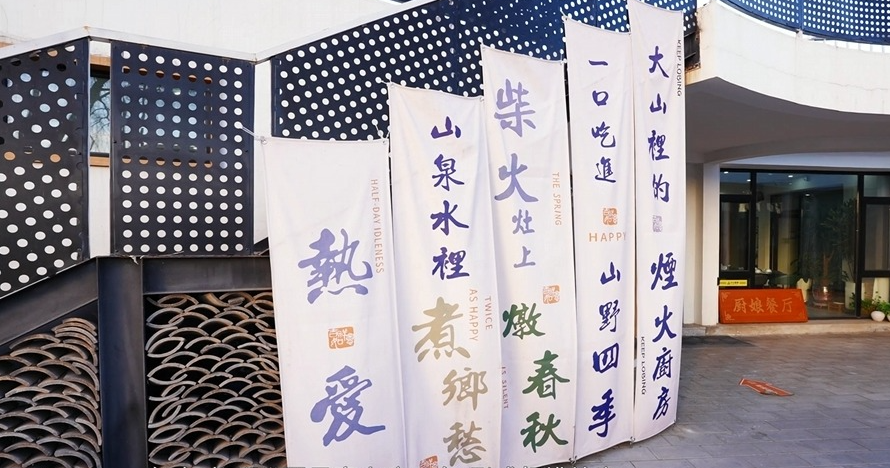 熱愛
HALF-DAY IDLENESS
山泉水裡
煮鄉愁
TWICE
AS HAPPY
柴火灶上
燉春秋
THE SPRING
IS SILENT
一口吃進
HAPPY
山野四季
大山裡的
煙火廚房
KEEP LOSING
KEEP LOSING
厨娘餐厅